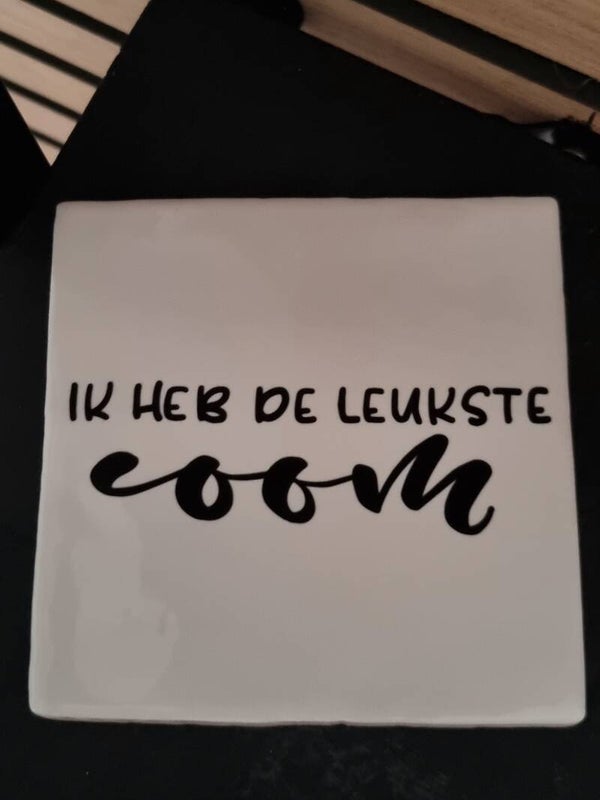 IK HEB DE LEUKSTE
oom